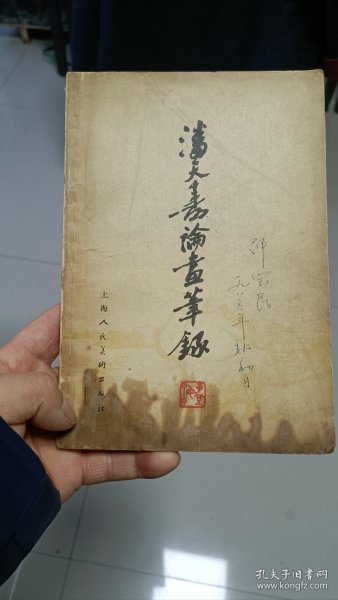 潘天寿論畫筆錄
上海人民美術出版社
一九八五年秋
孔夫子旧书网
www.kongfz.com